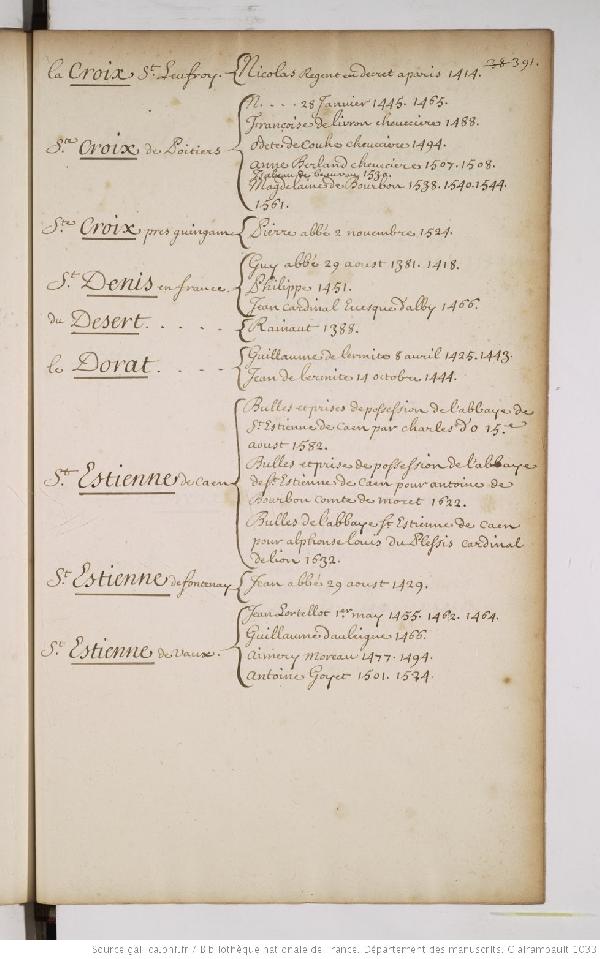 38 391.
la Croix St. Leufroy. Nicolas Regent en decret a paris 1414.
N. . . . 28 Janvier 1445. 1465.
Françoise de livron chevecière 1488.
Odete de Couhe chevecière 1494.
Ste Croix de Poitiers
anne Berland chevecière 1507. 1508.
1539.
Magdelaine de Bourbon 1538. 1540. 1544.
1561.
Ste Croix pres guingamp Pierre abbé 2 novembre 1524.
Guy abbé 29 aoust 1381. 1418.
St. Denis en france. Philippe 1451.
Jean cardinal Evesque d'alby 1466.
du Desert. . . . . . Rainaut 1388.
le Dorat. . . . . Guillaume de lermite 8 avril 1425. 1443.
Jean de lermite 14 octobre 1444.
Bulles et prises de possession de l'abbaye de
St Estienne de Caen par charles d'O 15.e
aoust 1582.
St Estienne de Caen
Bulles et prise de possession de l'abbaye
de St Estienne de Caen pour antoine de
Bourbon comte de moret 1622.
Bulles de l'abbaye St Estienne de Caen
pour alphonse louis du Plessis cardinal
de lion 1632.
St Estienne de fontenay Jean abbé 29 aoust 1429.
Jean Lortellot 1er may 1455. 1462. 1464.
Guillaume 1466.
St Estienne de vaux. aimery Moreau 1477. 1494.
Antoine Goyet 1501. 1524.
Source gallica.bnf.fr / Bibliothèque nationale de France. Département des manuscrits. Clairambault 1033